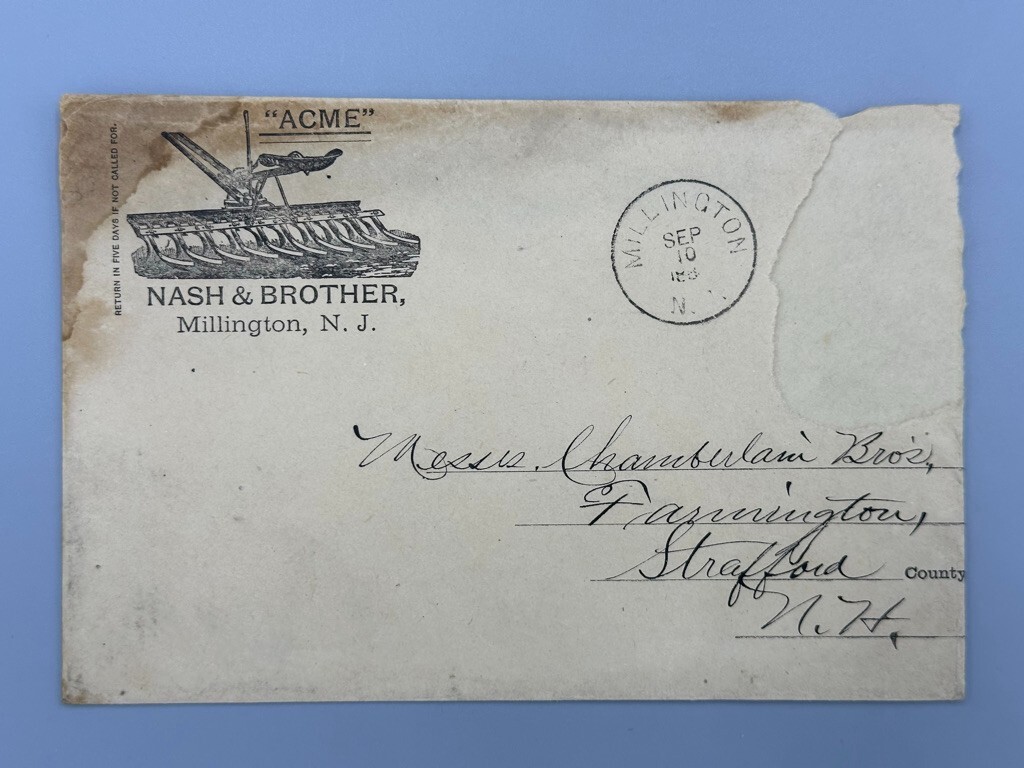 RETURN IN FIVE DAYS IF NOT CALLED FOR.
"ACME"
NASH & BROTHER,
Millington, N. J.
MILLINGTON
SEP
10
N.
Messrs. Chamberlain Bro's,
Farmington,
Strafford County
N. H.